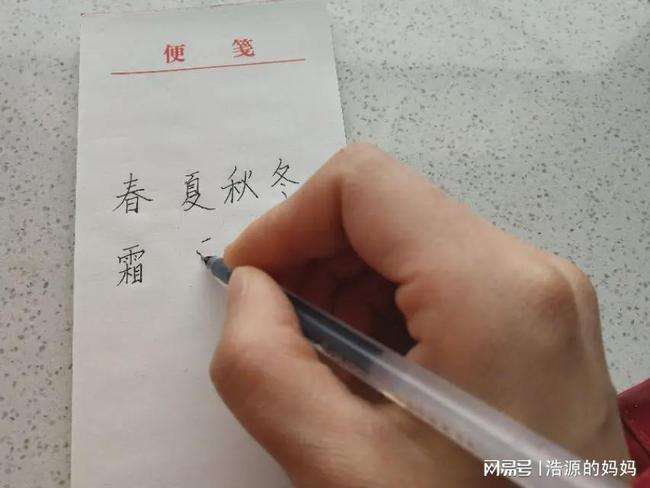 便 笺
春 夏 秋 冬
霜
网易号 | 浩源的妈妈